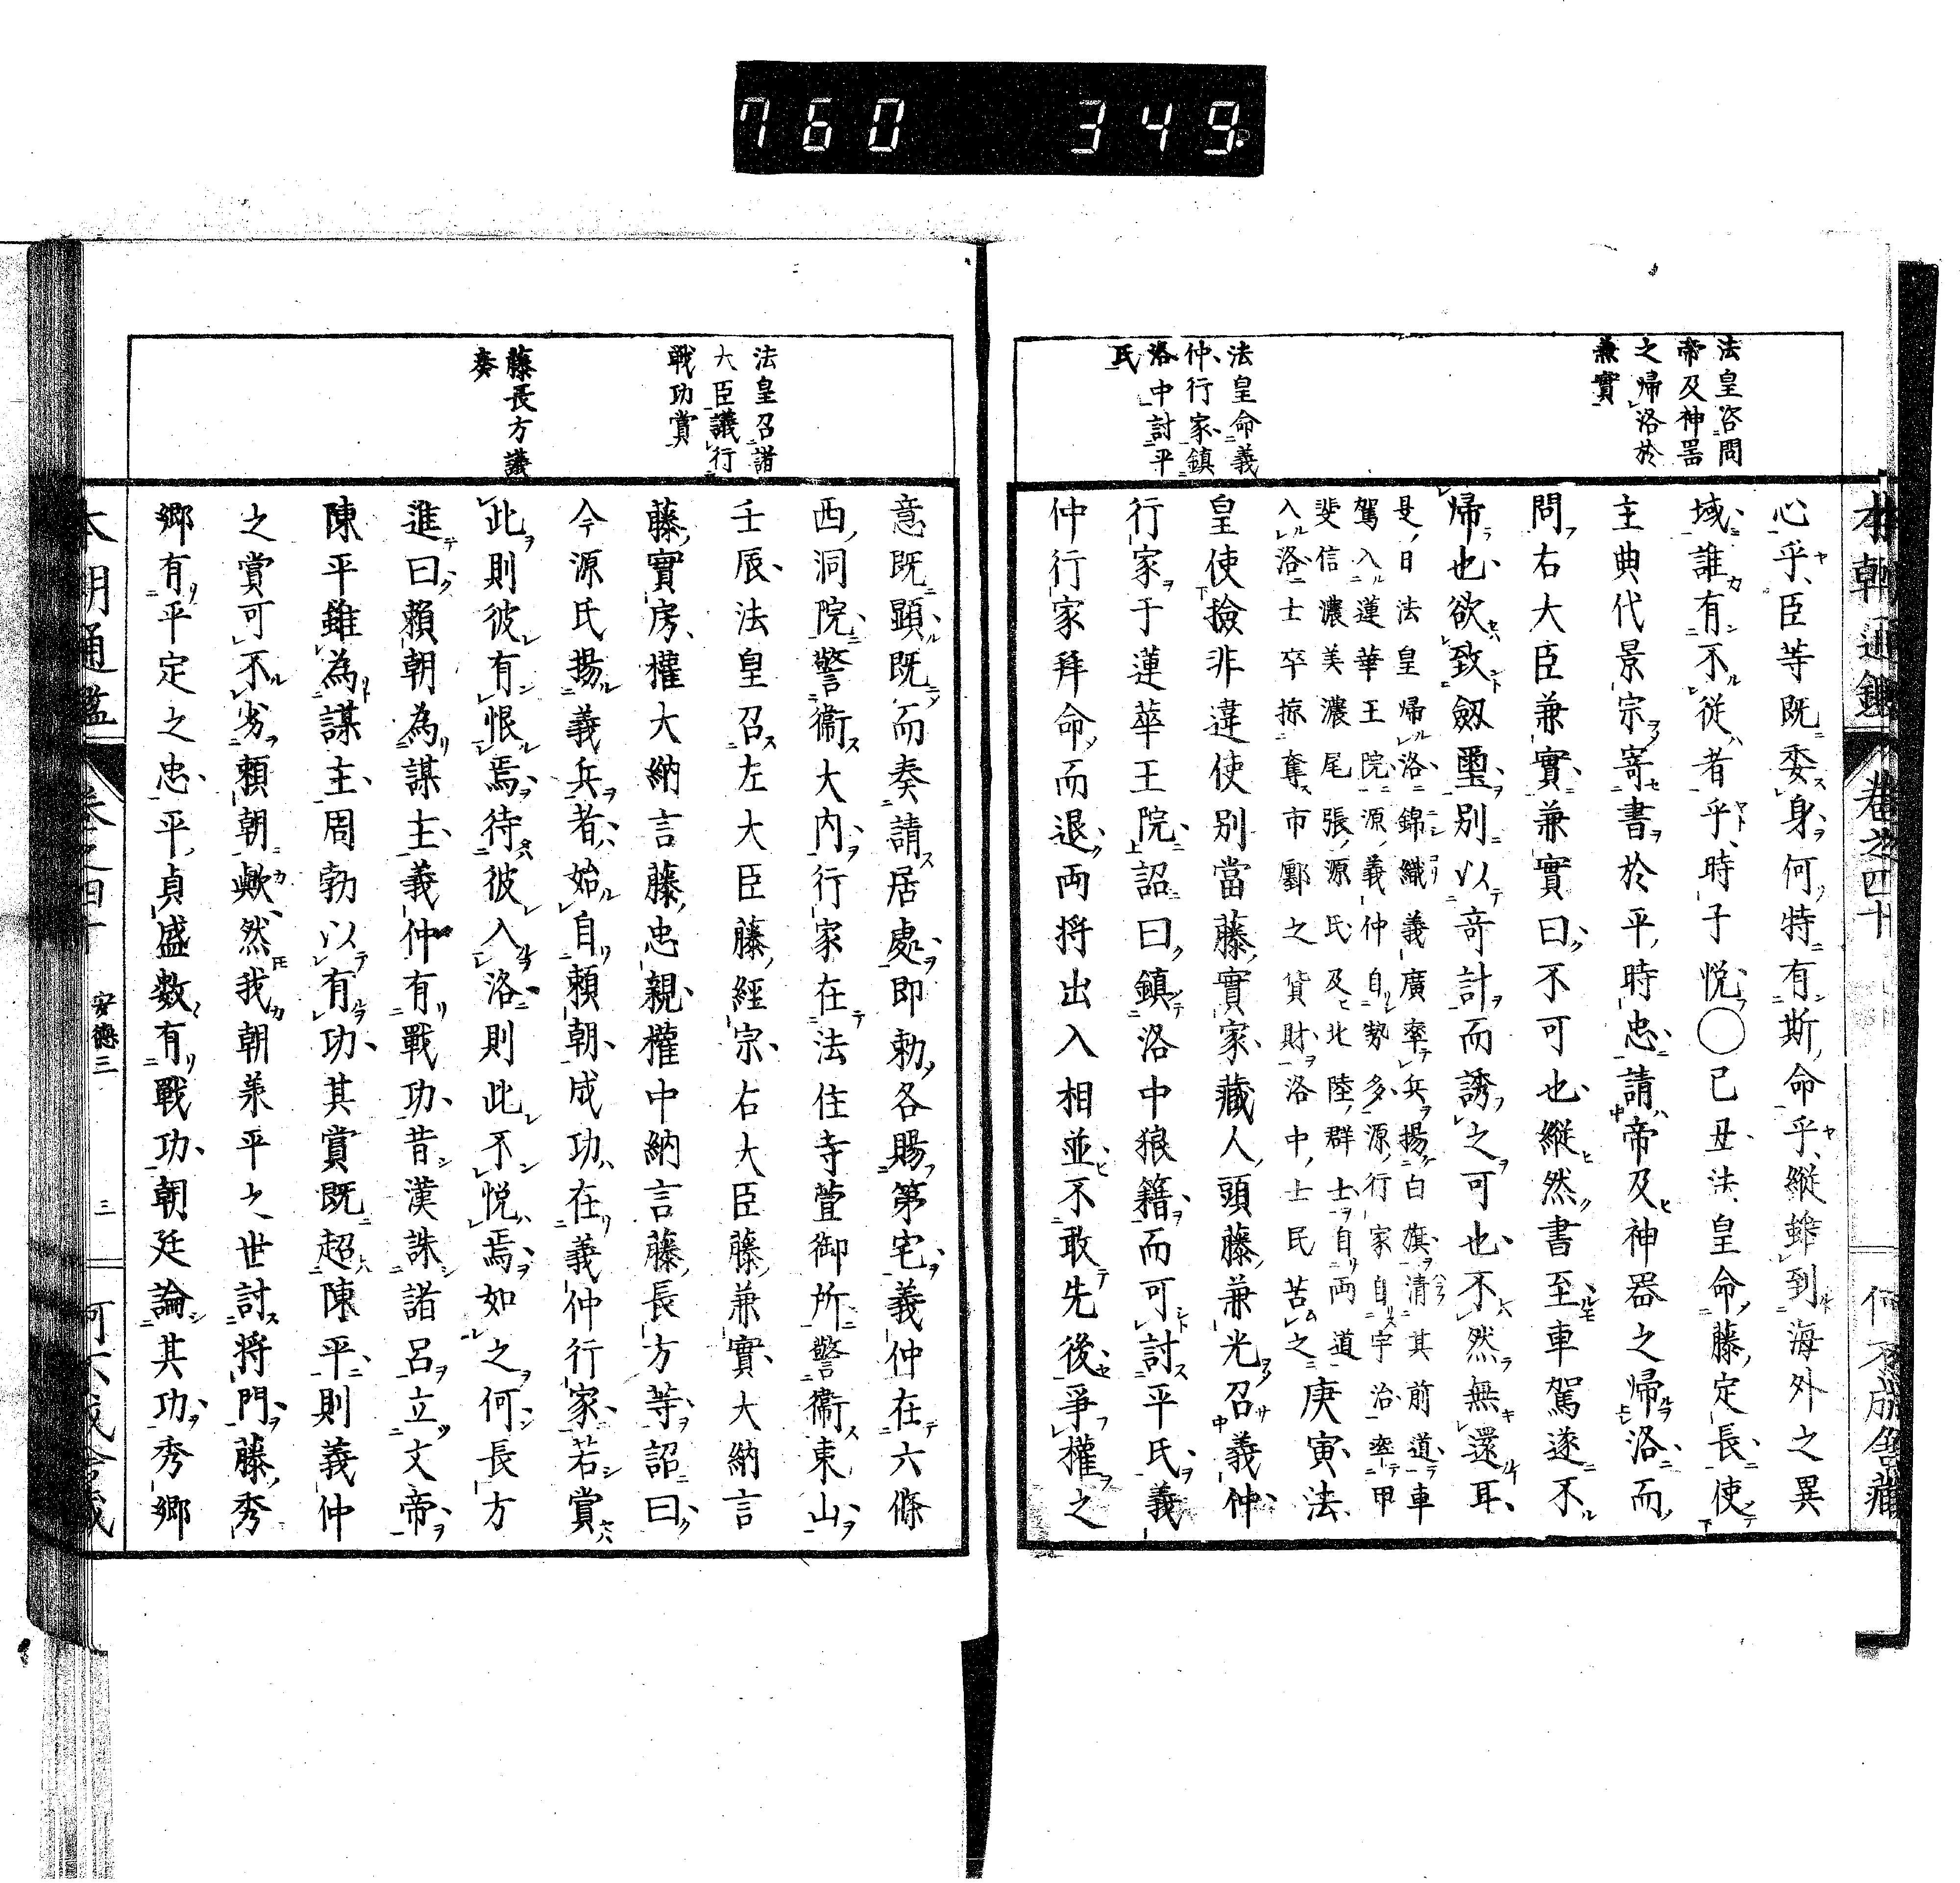 760 349
本朝通鑑 卷之四十 何不成舍藏
法皇咨問
帝及神器
之歸洛於
兼實
法皇命義
仲行家鎮
洛中討平
氏
心乎臣等既委身何特有斯命乎縱雖到海外之異
域誰有不從者乎時子悦〇己丑法皇命藤定長使
主典代景宗寄書於平時忠請帝及神器之歸洛而
問右大臣兼實兼實曰不可也縱然書至車駕遂不
歸也欲致劔璽別以奇計而誘之可也不然無還耳
是日法皇歸洛錦織義廣率兵揚白旗清其前道車
駕入蓮華王院源義仲自勢多源行家自宇治率甲
斐信濃美濃尾張源氏及北陸群士自兩道
入洛士卒掠奪市鄽之貨財洛中士民苦之
庚寅法
皇使檢非違使別當藤實家藏人頭藤兼光召義仲
行家于蓮華王院詔曰鎮洛中狼籍而可討平氏義
仲行家拜命而退兩将出入相並不敢先後爭權之
法皇召諸
大臣議行
戰功賞
藤長方議
奏
意既顕既而奏請居處即勅各賜第宅義仲在六條
西洞院警衞大内行家在法住寺萱御所警衞東山
壬辰法皇召左大臣藤經宗右大臣藤兼實大納言
藤實房權大納言藤忠親權中納言藤長方等詔曰
今源氏揚義兵者始自頼朝成功在義仲行家若賞
此則彼有恨焉待彼入洛則此不悦焉如之何長方
進曰頼朝為謀主義仲有戰功昔漢誅諸呂立文帝
陳平雖為謀主周勃以有功其賞既超陳平則義仲
之賞可不劣頼朝歟然我朝兼平之世討将門藤秀
郷有平定之忠平貞盛数有戰功朝廷論其功秀郷
本朝通鑑 卷之四十 安德三 三 何不成舍藏